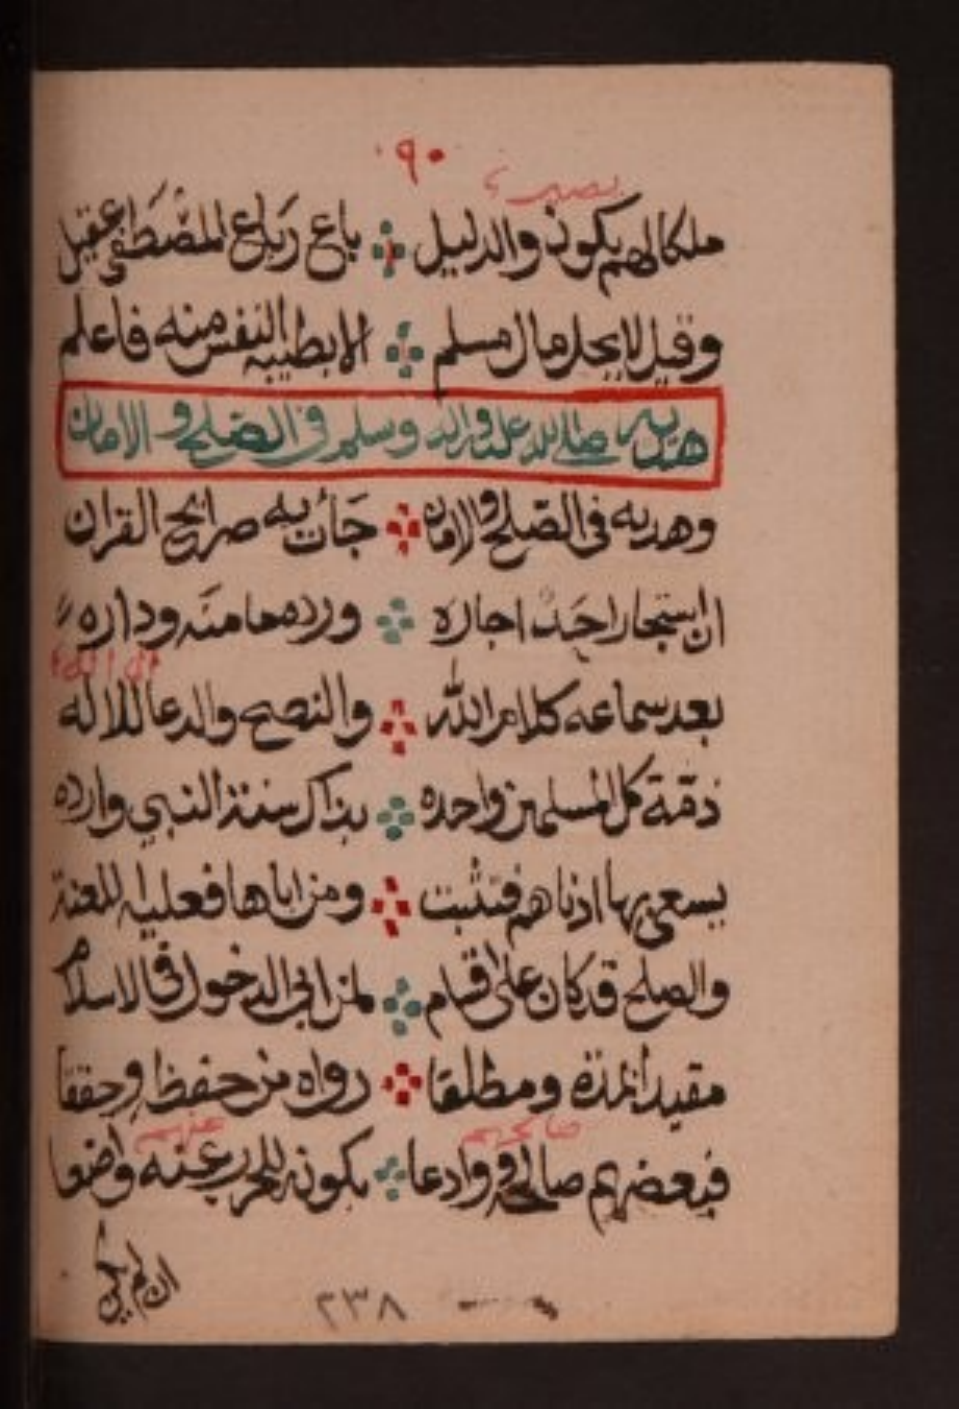 ٩٠
يصير
ملكا لهم يكون والدليل باع رباع المصطفى عقيل
وقيل لا يحل مال مسلم الا بطيبه النفس منه فاعلم
هديه صلى الله عليه واله وسلم في الصلح والامان
وهديه في الصلح والامان جأت به صرايح القران
ان استجار احد اجاره ورده مامنه وداره
الى الله
بعد سماعه كلام الله والنصح والدعا للاله
ذمة كل المسلمين واحده بذاك سنة النبي وارده
يسعى بها ادناهم فتثبت ومن اباها فعليه اللعنة
والصلح قد كان على اقسام لمن ابى الدخول في الاسلام
مقيد المدة ومطلقا رواه من حفظ وحققا
صالحهم عنهم
فبعضهم صالح ووادعا بكونه للحرب عنه واضعا
ان لم
٢٣٨